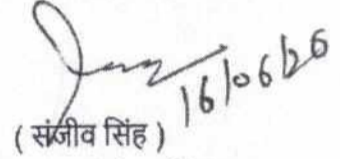 16/06/26
( संजीव सिंह )